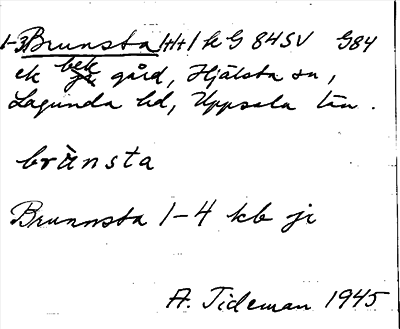 1-3 Brunsta 1+1 k G 84SV G84
ek bek gård, Hjälsta sn,
Lagunda hd, Uppsala län.
brànsta
Brunnsta 1-4 kb jr
A. Tideman 1945